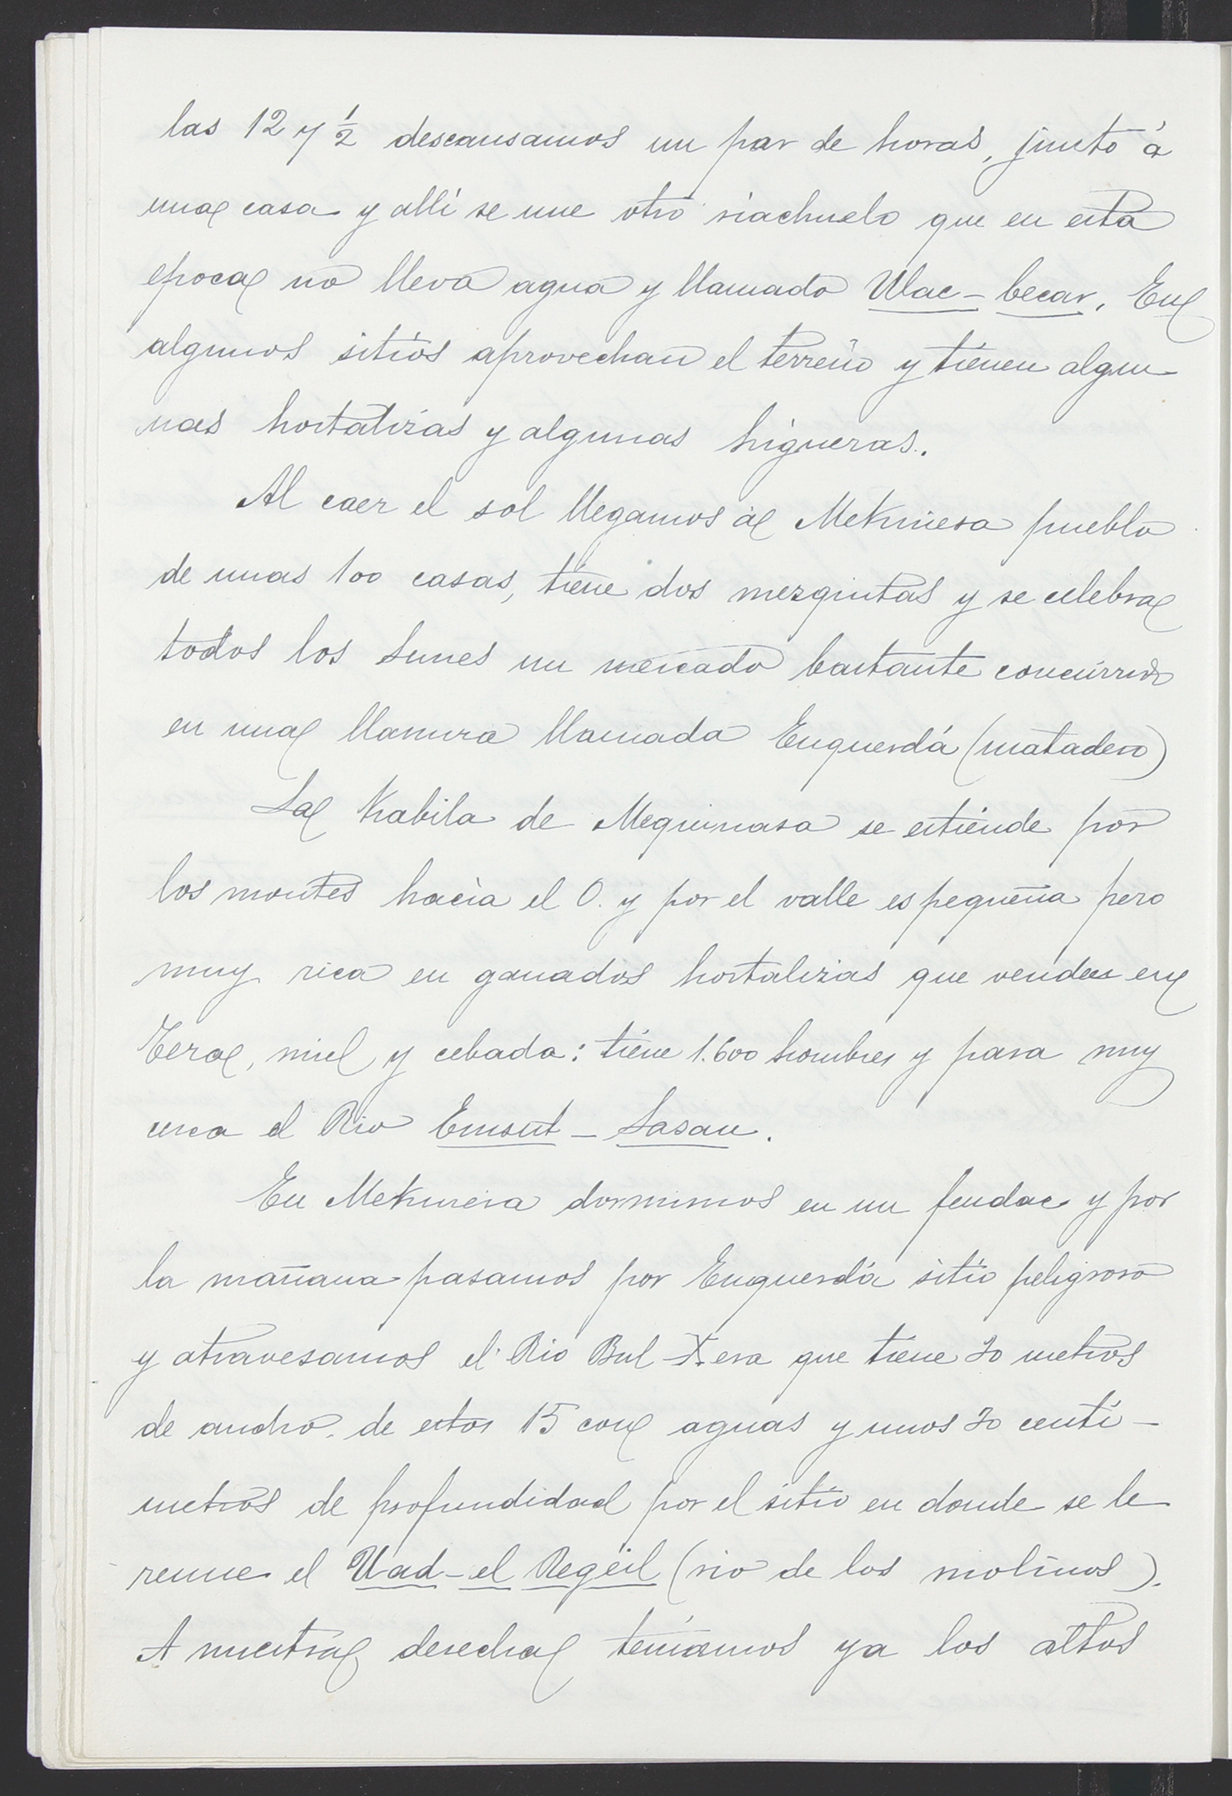 las 12 y ½ descansamos un par de horas, junto á
una casa y allí se une otro riachuelo que en esta
epoca no lleva agua y llamado Ulac-becar. En
algunos sitios aprovechan el terreno y tienen algu-
nas hortalizas y algunas higueras.
Al caer el sol llegamos á Mekniesa pueblo
de unas 100 casas, tiene dos mezquitas y se celebra
todos los Lunes un mercado bastante concurrido
en una llanura llamada Enguerdá (matadero)
La Kabila de Mequinasa se estiende por
los montes hacia el O. y por el valle es pequeña pero
muy rica en ganados hortalizas que venden en
Teza, miel y cebada: tiene 1.600 hombres y pasa muy
cerca el Rio Emsut-Lasau.
En Meknesa dormimos en un fendac y por
la mañana pasamos por Enguerdá sitio peligroso
y atravesamos el Rio Bul-Xera que tiene 30 metros
de ancho, de estos 15 con aguas y unos 30 centi-
metros de profundidad por el sitio en donde se le
reune el Uad-el Regëil (rio de los molinos).
A nuestra derecha teníamos ya los altos